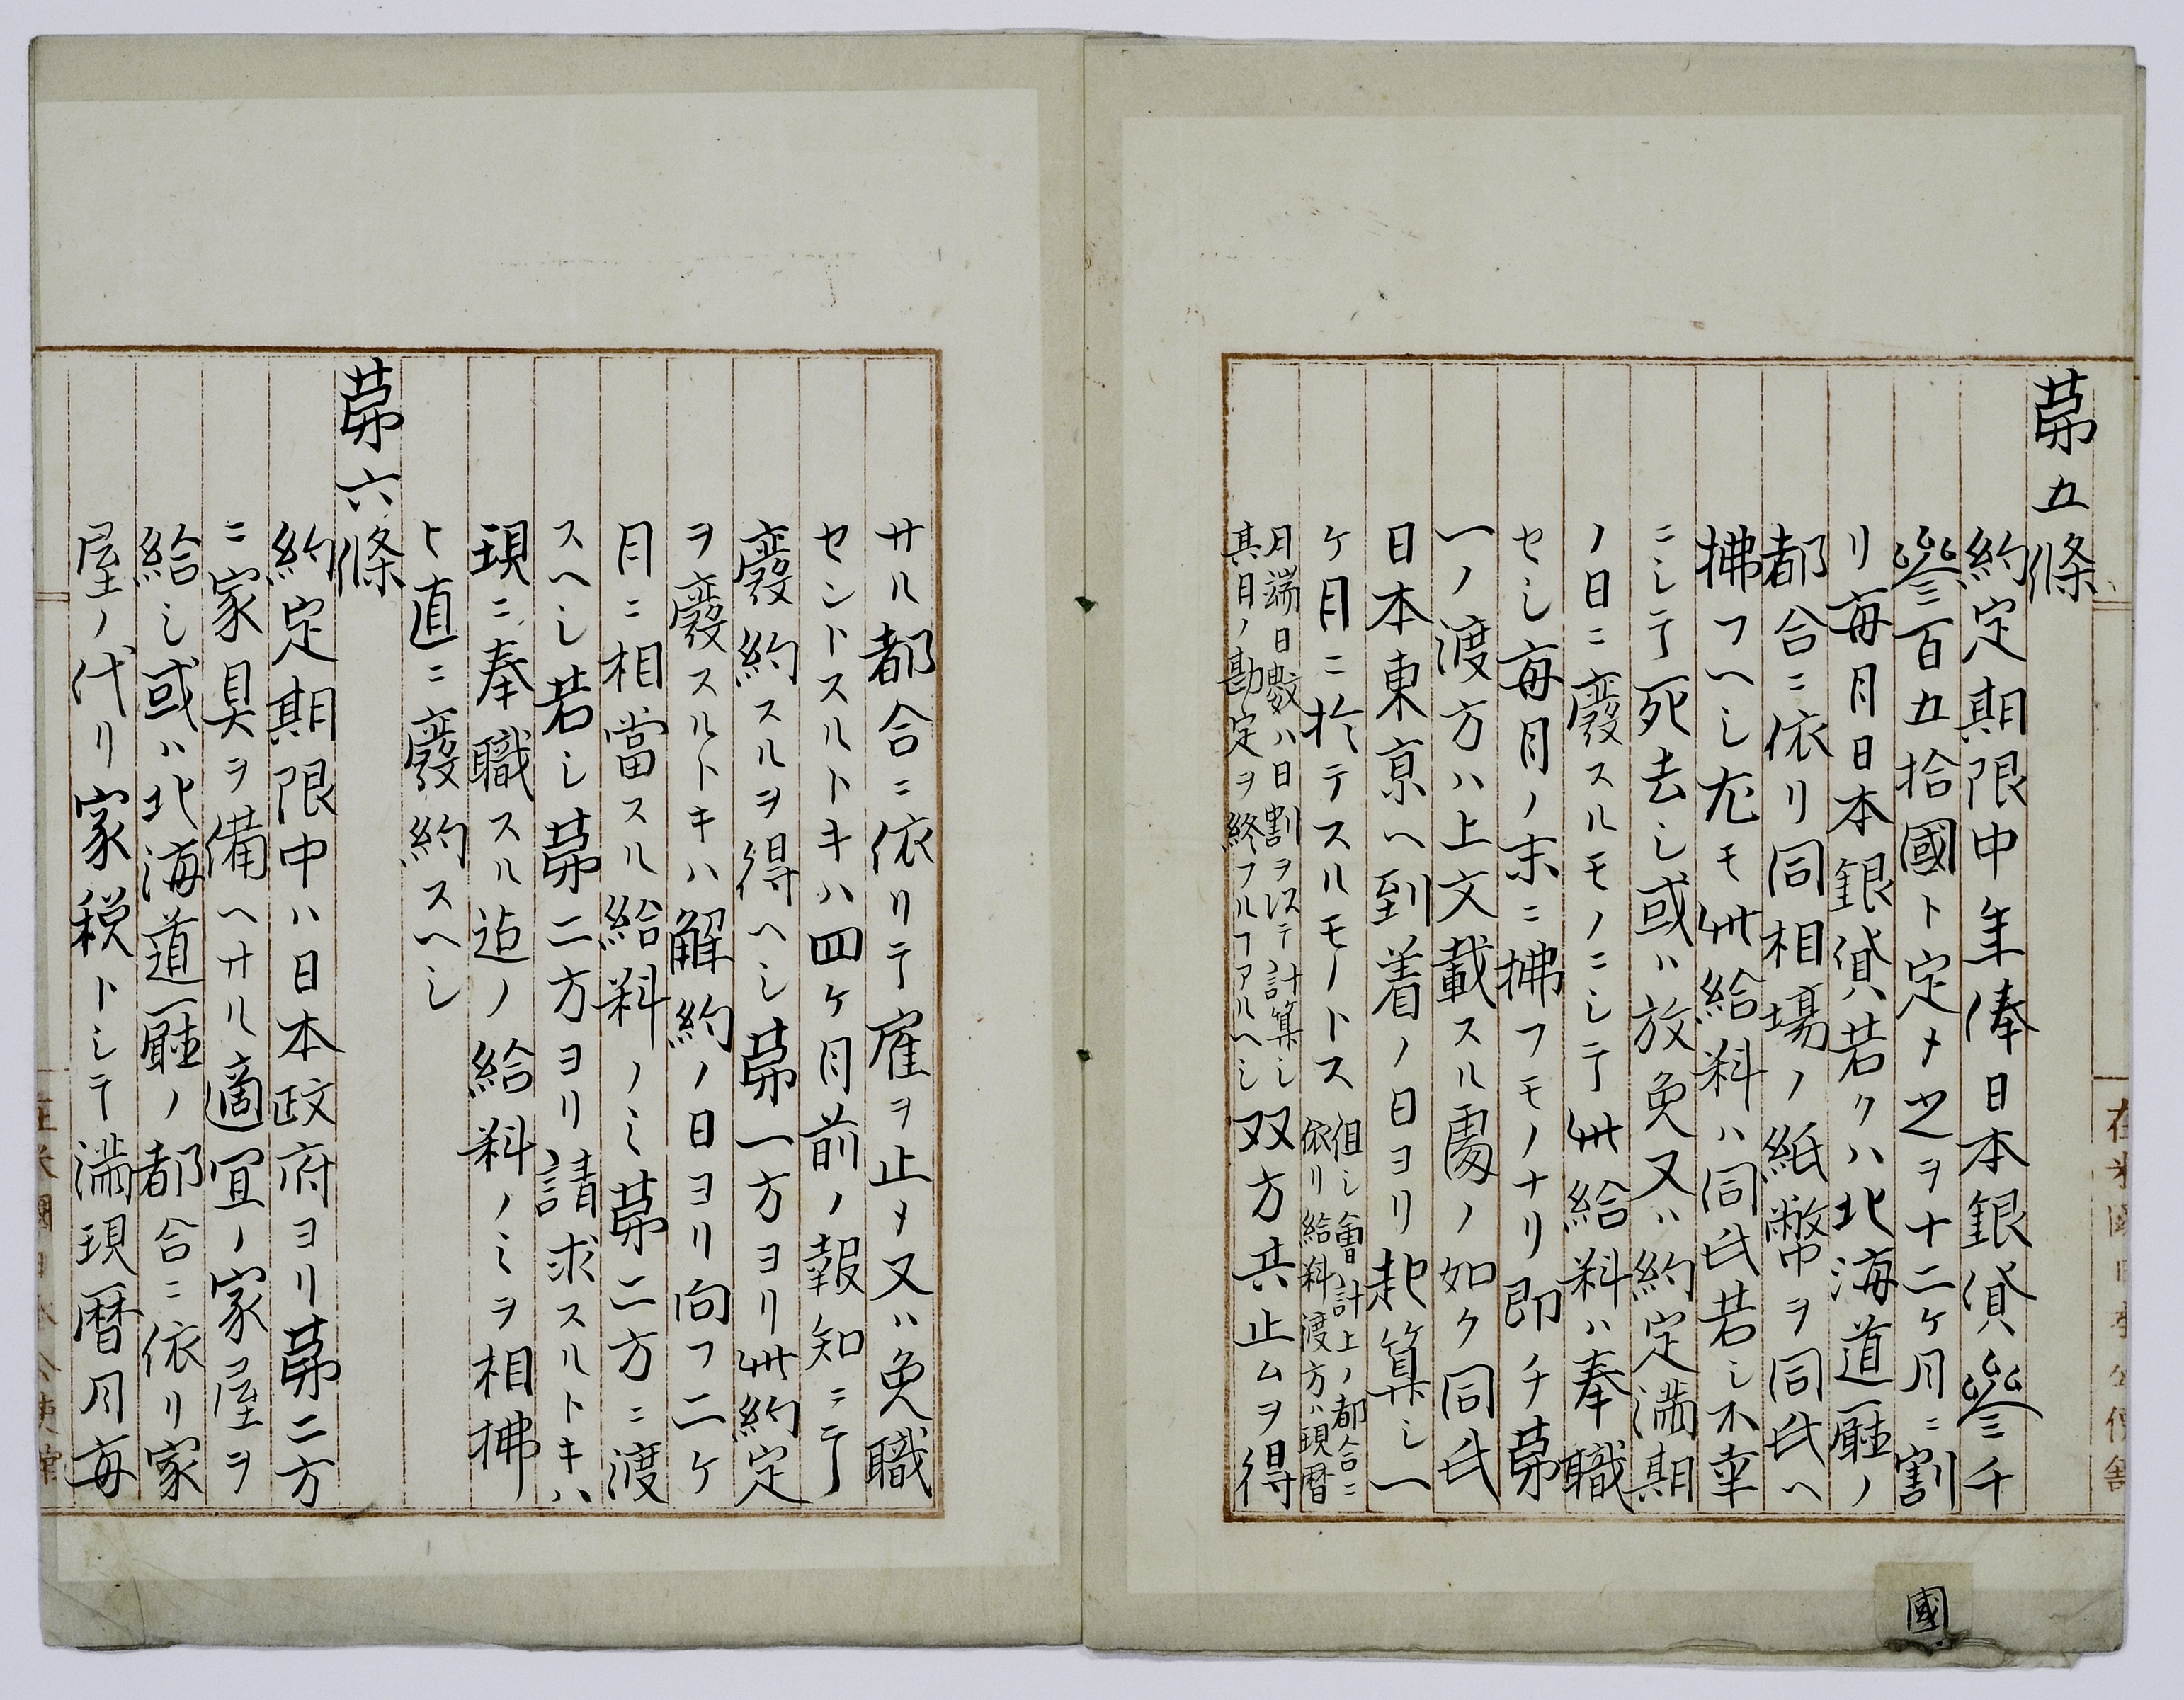 第五條
約定期限中年俸日本銀貨叄千
叄百五拾國ト定メ之ヲ十二ケ月ニ割
リ毎月日本銀貨若クハ北海道廳ノ
都合ニ依リ同相場ノ紙幣ヲ同氏ヘ
拂フヘシ尤モ此給料ハ同氏若シ不幸
ニシテ死去シ或ハ放免又ハ約定満期
ノ日ニ廢スルモノニシテ此給料ハ奉職
セシ毎月ノ末ニ拂フモノナリ即チ第
一ノ渡方ハ上文載スル處ノ如ク同氏
日本東京ヘ到着ノ日ヨリ起算シ一
ケ月ニ於テスルモノトス但シ會計上ノ都合ニ
依リ給料渡方ハ現暦
月端日數ハ日割ヲ以テ計算シ
其日ノ勘定ヲ終フルヿアルヘシ双方共止ムヲ得
サル都合ニ依リテ雇ヲ止メ又ハ免職
セントスルトキハ四ケ月前ノ報知ニテ
廢約スルヲ得ヘシ第一方ヨリ此約定
ヲ廢スルトキハ解約ノ日ヨリ向フ二ケ
月ニ相當スル給料ノミ第二方ニ渡
スヘシ若シ第二方ヨリ請求スルトキハ
現ニ奉職スル迠ノ給料ノミヲ相拂
ヒ直ニ廢約スヘシ
第六條
約定期限中ハ日本政府ヨリ第二方
ニ家具ヲ備ヘサル適宜ノ家屋ヲ
給シ或ハ北海道廳ノ都合ニ依リ家
屋ノ代リ家税トシテ満現暦月毎
在米國日本公使館
在米國日本公使館
國